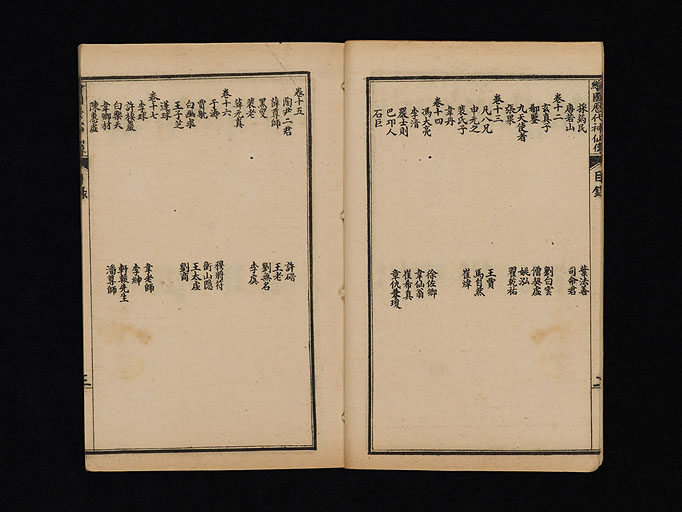 繪圖歷代神仙傳
目錄
二
採藥民
葉法善
唐若山
司命君
卷十二
玄真子
劉白雲
鄱鑒
僧契虛
九天使者
姚泓
張果
翟乾祐
卷十三
凡八兄
王賈
申元之
馬自然
裴氏子
崔煒
韋丹
卷十四
馮大亮
徐佐卿
李清
韋仙翁
嚴士則
崔希真
巴卭人
章仇兼瓊
石巨
卷十五
陶尹二君
許碏
薛尊師
王老
黑叟
劉無名
裴老
李虞
薛元真
卷十六
于濤
穆將符
賈耽
衡山隱
白幽求
王太虛
王子芝
劉商
蓬球
卷十七
李球
韋老師
許棲巖
李紳
白樂天
軒轅先生
韋卿材
潘尊師
陳惠虛
目錄
三